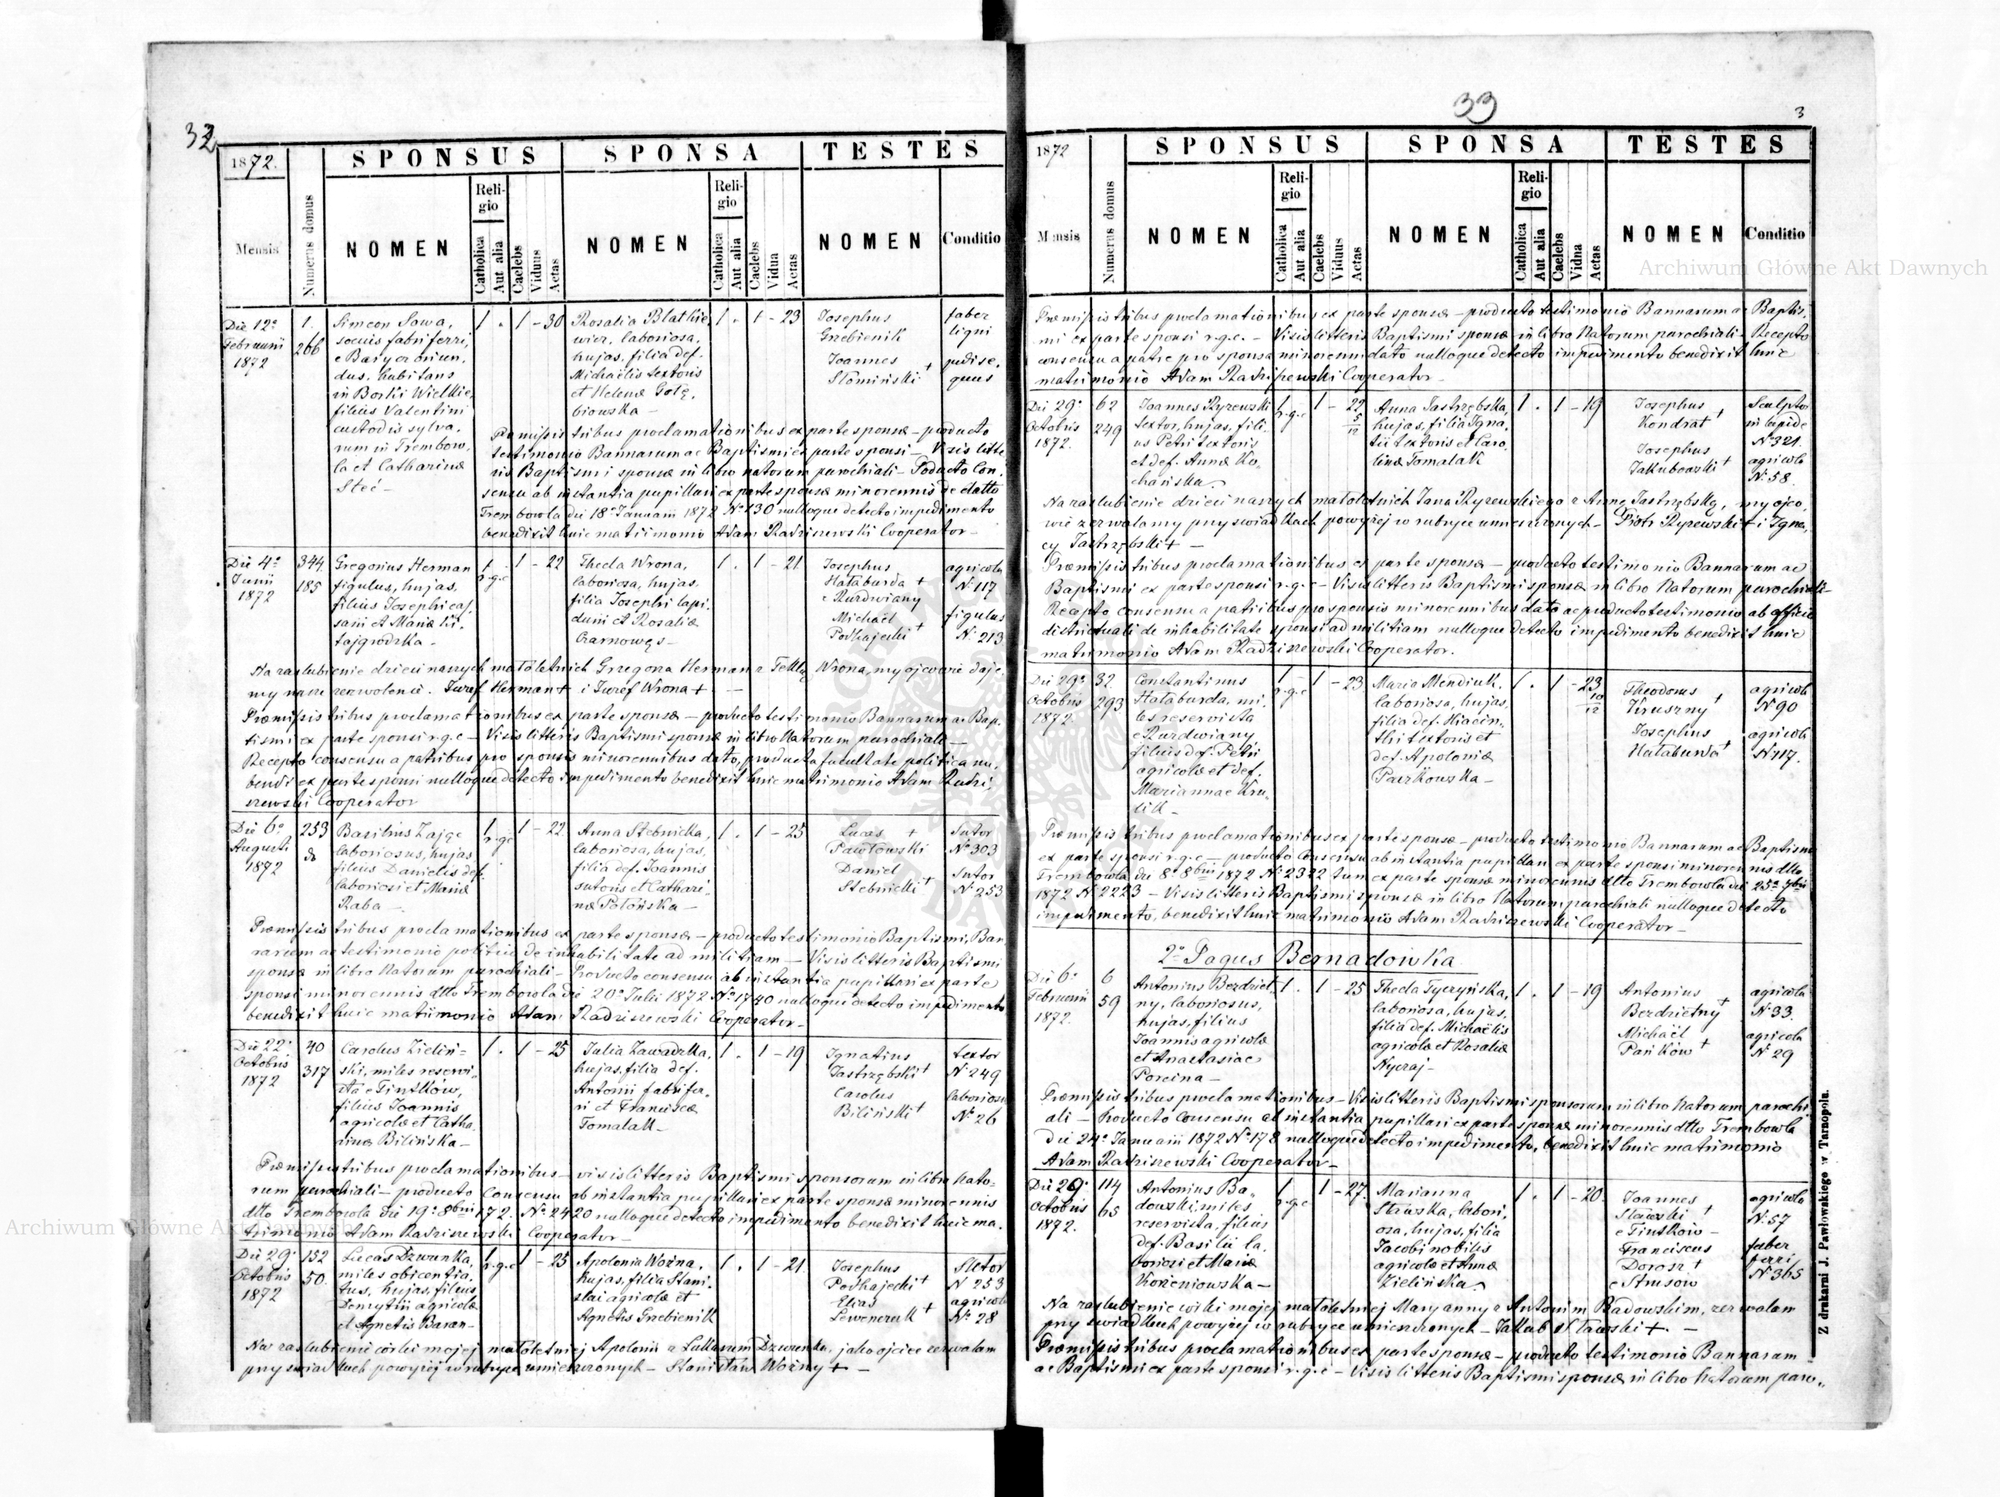 32
1872.
Mensis
Numerus domus
SPONSUS
NOMEN
Religio
Catholica
Aut alia
Caelebs
Viduus
Aetas
SPONSA
NOMEN
Religio
Catholica
Aut alia
Caelebs
Vidua
Aetas
TESTES
NOMEN
Conditio
Die 12ª Februarii 1872
1. 266
Simeon Sowa,
socius fabri ferri,
in Borki Wielkie,
filius Valentini
custodis sylva,
rum in Trembow,
la et Catharinæ
Steć –
1 . 1 – 30
Rosalia Blatkie,
wicz, laboriosa,
hujas, filia def.
Michaelis textoris
et Helenæ Gołę,
biowska –
1 . 1 – 23
Josephus
Grzebienik
Joannes
Słomiński +
faber
ligni
pedise,
quus
Præmissis tribus proclamationibus ex parte sponsæ – producto
testimonio Bannorum ac Baptismi ex parte sponsi – Visis litte
ris Baptismi sponsæ in libro natorum parochiali – Poducto Con,
sensu ab instantia pupillari ex parte sponsæ minorennis de datto
Trembowla die 18ª Januarii 1872 Nº 130 nulloque detecto impedimento
benedixit huic matrimonio Adam Radziszewski Cooperator –
Die 4ª Junii 1872
344 185
Gregorius Herman
figulus, hujas,
filius Josephi
et Mariæ
1 r.g.c 1 – 22
Thecla Wrona,
laboriosa, hujas,
filia Josephi lapi,
darii et Rosaliæ
Czarnowęs –
1 . 1 – 21
Josephus
Hałaburda +
e Rurdwiany
Michaël
Podhajecki +
agricola
Nº 117
figulus
Nº 213
Na zaślubienie dzieci naszych małoletnich Grzegorza Herman z Teklą Wrona, my ojcowie daje,
my nasze zezwolenie. Jozef Herman + i Jozef Wrona + –
Præmissis tribus proclamationibus ex parte sponsæ – producto testimonio Bannorum ac Bap,
tismi ex parte sponsi r.g.c – Visis litteris Baptismi sponsæ in libro Natorum parochiali –
Recepto consensu a patribus pro sponsis minorennibus dato, producta facultate politica nu,
bendi ex parte sponsi nulloque detecto impedimento benedixit huic matrimonio Adam Radzi,
szewski Cooperator
Die 6ª Augusti 1872
253 do
Basilius Zając
laboriosus, hujas
filius Danielis def.
laboriosi et Mariæ
Raba –
1 r.g.c 1 – 22
Anna Stebnicka,
laboriosa, hujas,
filia def. Joannis
sutoris et Cathari,
næ Połońska –
1 . 1 – 25
Lucas +
Pawłowski
Daniel
Stebnicki +
Sutor
Nº 303
Sutor
Nº 253
Præmissis tribus proclamationibus ex parte sponsæ – producto testimonio Baptismi, Ban,
norum ac testimonio politico de inhabilitate ad militiam – Visis litteris Baptismi
sponsæ in libro Natorum parochiali – Producto consensu ab instantia pupillari ex parte
sponsi minorennis dtto Trembowla die 20ª Julii 1872 Nº 1740 nulloque detecto impedimento
benedixit huic matrimonio Adam Radziszewski Cooperator –
Die 22ª Octobris 1872
40 317
Carolus Zieliń=
ski, miles reservi,
sta e Tiutków,
filius Joannis
agricolæ et Catha,
rinæ Bilińska –
1 . 1 – 25
Julia Zawadzka,
hujas, filia def.
Antonii fabri fer,
ri et Franciscæ
Tomalak –
1 . 1 – 19
Ignatius
Jastrzębski +
Carolus
Biliński +
textor
Nº 249
laboriosus
Nº 26
Præmissis tribus proclamationibus – visis litteris Baptismi sponsorum in libro Nato=
rum parochiali – producto Consensu ab instantia pupillari ex parte sponsæ minorennis
dtto Trembowla die 19ª 8bris 1872. Nº 2420 nulloque detecto impedimento benedixit huic ma,
trimonio Adam Radziszewski Cooperator –
Die 29ª Octobris 1872
152 50.
Lucas Dzwonka,
miles
hujas, filius
Demytrii agricolæ
et Agnetis Baran –
1 r.g.c 1 – 25
Apolonia Woźna,
hujas, filia Stani,
slai agricolæ et
Agnetis Grzebienik
1 . 1 – 21
Josephus
Podhajecki +
Elias
Leweneruk +
Nº 253
agricola
Nº 28
Na zaślubienie córki mojej małoletniej Apolonii z Łukaszem Dzwonka, jako ojciec zezwalam
przy świadkach powyżej w rubryce umieszczonych – Stanisław Woźny + –
33
3
1872
Mensis
Numerus domus
SPONSUS
NOMEN
Religio
Catholica
Aut alia
Caelebs
Viduus
Aetas
SPONSA
NOMEN
Religio
Catholica
Aut alia
Caelebs
Vidua
Aetas
TESTES
NOMEN
Conditio
Præmissis tribus proclamationibus ex parte sponsæ – producto testimonio Bannorum ac Baptis,
mi ex parte sponsi r.g.c. – Visis litteris Baptismi sponsæ in libro Natorum parochiali – Recepto
consensu a patre pro sponsa minorenni dato nulloque detecto impedimento benedixit huic
matrimonio Adam Radziszewski Cooperator –
Die 29ª Octobris 1872.
62 249
Joannes Ryzewski
textor, hujas, fili,
us Petri textoris
et def. Annæ Ko,
chańska –
1 r.g.c 1 – 22 5/12
Anna Jastrzębska,
hujas, filia Igna,
tii textoris et Caro,
linæ Tomalak
1 . 1 – 19
Josephus
Kondrat +
Josephus
Jakubowski +
Sculptor
in lapide
Nº 321.
agricola
Nº 58.
Na zaślubienie dzieci naszych małoletnich Jana Ryzewskiego z Anną Jastrzębską, my ojco,
wie zezwalamy przy świadkach powyżej w rubryce umieszczonych – Piotr Ryzewski + i Igna,
cy Jastrzębski + –
Præmissis tribus proclamationibus ex parte sponsæ – producto testimonio Bannorum ac
Baptismi ex parte sponsi r.g.c – Visis litteris Baptismi sponsæ in libro Natorum parochiali –
Recepto consensu a patribus pro sponsis minorennibus dato ac producto testimonio ab officio
districtuali de inhabilitate sponsi ad militiam nulloque detecto impedimento benedixit huic
matrimonio Adam Radziszewski Cooperator.
Die 29ª Octobris 1872.
32 293
Constantinus
Hałaburda, mi,
les reservista
e Rurdwiany
filius def. Petri
agricolæ et def.
Mariannæ Kru,
lik –
1 r.g.c 1 – 23
Maria Mendiuk,
laboriosa, hujas,
filia def. Hiacin,
thi textoris et
def. Apoloniæ
Paczkowska –
1 . 1 – 23 10/12
Theodorus
Kruszny +
Josephus
Hałaburda +
agricola
Nº 90
agricola
Nº 117.
Præmissis tribus proclamationibus ex parte sponsæ – producto testimonio Bannorum ac Baptismi
ex parte sponsi r.g.c – producto Consensu ab instantia pupillari ex parte sponsi minorennis dtto
Trembowla die 8ª 8bris 1872 Nº 2322 tum ex parte sponsæ minorennis dtto Trembowla die 25ª 7bris
1872 Nº 2223 – Visis litteris Baptismi sponsæ in libro Natorum parochiali nulloque detecto
impedimento, benedixit huic matrimonio Adam Radziszewski Cooperator –
2º Pagus Bernadówka
Die 6ª Februarii 1872.
6 59
Antonius Bezdziet,
ny, laboriosus,
hujas, filius
Joannis agricolæ
et Anastasiae
Porcina –
1 . 1 – 25
Thecla Tyczyńska,
laboriosa, hujas,
filia def. Michaëlis
agricolæ et Rosaliæ
Nyczaj –
1 . 1 – 19
Antonius
Bezdzietny +
Michaël
Pańków +
agricola
Nº 33.
agricola
Nº 29
Præmissis tribus proclamationibus – Visis litteris Baptismi sponsorum in libro Natorum parochi
ali – Producto Consensu ab instantia pupillari ex parte sponsæ minorennis dtto Trembowla
die 24ª Januarii 1872 Nº 178 nulloque detecto impedimento, benedixit huic matrimonio
Adam Radziszewski Cooperator –
Die 29ª Octobris 1872.
114 65
Antonius Ba,
dowski, miles
reservista, filius
def. Basilii la,
boriosi et Mariæ
Korzeniowska –
1 r.g.c 1 – 27.
Marianna
Sławska, labori,
osa, hujas, filia
Jacobi nobilis
agricolæ et Annæ
Zielińska –
1 . 1 – 20.
Joannes
Sławski +
e Tiutków –
Franciscus
Dorosz +
e Strusów
agricola
Nº 57
faber
ferri
Nº 365
Na zaślubienie córki mojej małoletniej Maryanny z Antonim Badowskim, zezwalam
przy świadkach powyżej w rubryce umieszczonych – Jakub Sławski +. –
Præmissis tribus proclamationibus ex parte sponsæ – producto testimonio Bannorum
ac Baptismi ex parte sponsi r.g.c – Visis litteris Baptismi sponsæ in libro Natorum paro,,
Z drukarni J. Pawłowskiego w Tarnopolu.
Archiwum Główne Akt Dawnych
Archiwum Główne Akt Dawnych